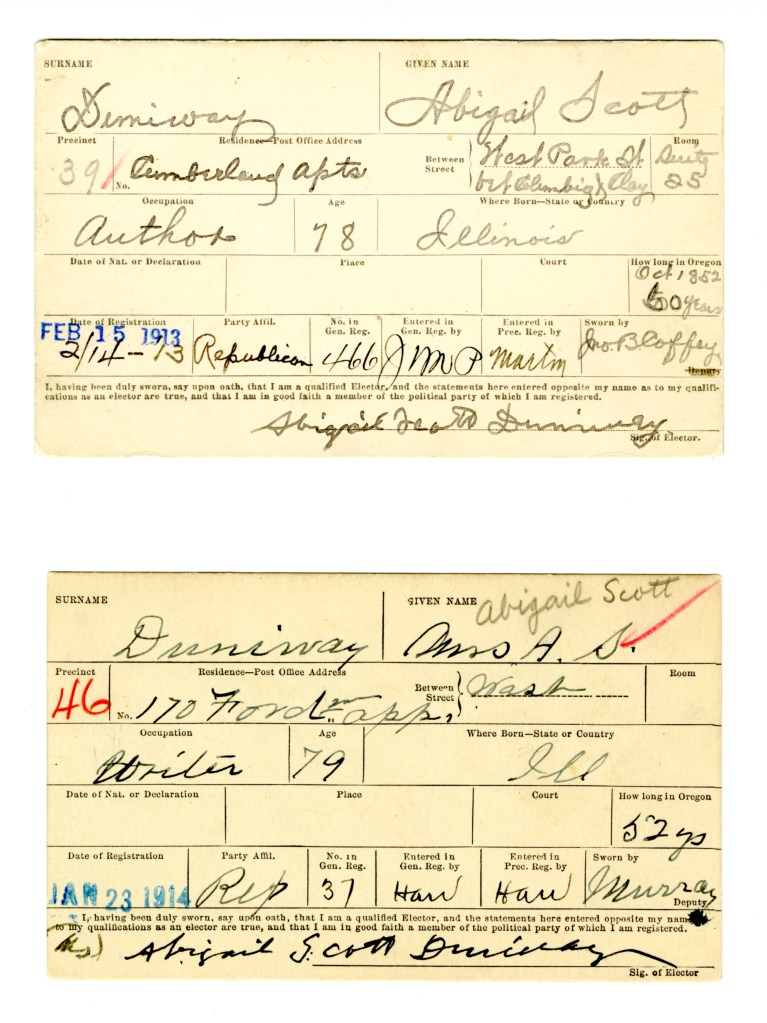 SURNAME GIVEN NAME
Duniway Abigail Scott
Precinct Residence—Post Office Address Between Street West Park St Room
39 No. Cumberland Apts bet Columbia & Clay 25
Occupation Age Where Born—State or Country
Author 78 Illinois
Date of Nat. or Declaration Place Court How long in Oregon
Oct 1852
60 years
Date of Registration Party Affil. No. in Gen. Reg. Entered in Gen. Reg. by Entered in Prec. Reg. by Sworn by
FEB 15 1913
2/14-13 Republican 466 J M P Martin Jno. B Coffey
Deputy
I, having been duly sworn, say upon oath, that I am a qualified Elector, and the statements here entered opposite my name as to my qualifi-
cations as an elector are true, and that I am in good faith a member of the political party of which I am registered.
Abigail Scott Duniway
Sig. of Elector.
SURNAME GIVEN NAME Abigail Scott
Duniway Mrs A. S.
Precinct Residence—Post Office Address Between Street Wash Room
46 No. 170 Ford app,
Occupation Age Where Born—State or Country
Writer 79 Ill
Date of Nat. or Declaration Place Court How long in Oregon
52 ys
Date of Registration Party Affil. No. in Gen. Reg. Entered in Gen. Reg. by Entered in Prec. Reg. by Sworn by
JAN 23 1914 Rep 37 Harr Harr Murray
Deputy
I, having been duly sworn, say upon oath, that I am a qualified Elector, and the statements here entered opposite my name as
to my qualifications as an elector are true, and that I am in good faith a member of the political party of which I am registered.
Abigail Scott Duniway
Sig. of Elector